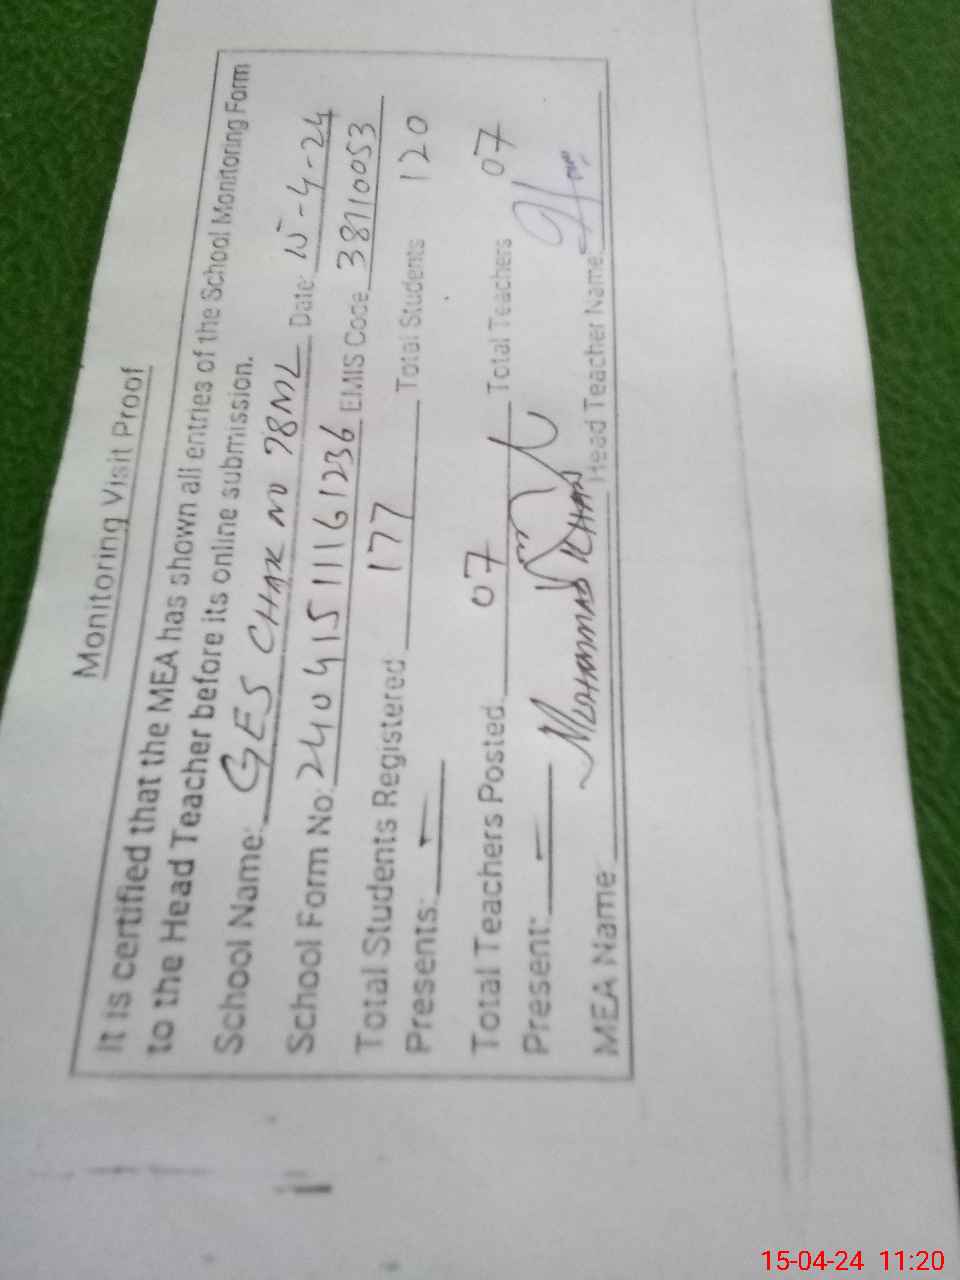 Monitoring Visit Proof
It is certified that the MEA has shown all entries of the School Monitoring Form
to the Head Teacher before its online submission.
School Name: GES CHAK NO 78ML Date: 15-4-24
School Form No: 24041511161236 EMIS Code 38110053
Total Students Registered 177 Total Students 120
Presents:
Total Teachers Posted 07 Total Teachers 07
Present:
MEA Name: MUHAMMAD KHAN Head Teacher Name:
15-04-24 11:20